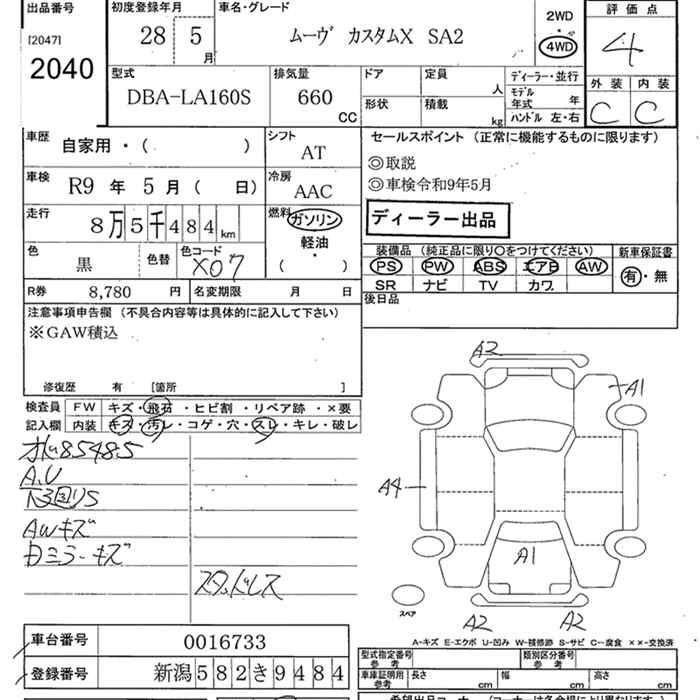 出品番号
[2047]
2040
初度登録年月
28 5
月
車名・グレード
ムーヴ カスタムX SA2
2WD
4WD
評価点
4
外装 内装
C C
型式
DBA-LA160S
排気量
660
CC
ドア
定員
人
形状
積載
kg
ディーラー・並行
モデル年式 年
ハンドル 左・右
車歴
自家用・( )
シフト
AT
車検
R9 年 5 月 ( 日)
冷房
AAC
走行
8万5千484km
燃料
ガソリン・
軽油・
( )
色
黒
色替
色コード
X07
R券
8,780 円
名変期限 月 日
セールスポイント (正常に機能するものに限ります)
◎取説
◎車検令和9年5月
ディーラー出品
装備品 (純正品に限り○をつけてください)
PS PW ABS エアB AW
SR ナビ TV カワ
新車保証書
有・無
後日品
注意事項申告欄 (不具合内容等は具体的に記入して下さい)
※GAW積込
修復歴 有 [箇所 ]
検査員記入欄
FW キズ・飛石・ヒビ割・リペア跡・×要
内装 キズ・汚レ・コゲ・穴・スレ・キレ・破レ
85485
A.U
下回りS
AWキズ
Dミラーキズ
スタッドレス
A2
A1
A4
A1
A2 A2
スペア
A-キズ E-エクボ U-凹み W-補修跡 S-サビ C-腐食 ××-交換済
車台番号
0016733
登録番号
新潟582き9484
型式指定番号
参考
類別区分番号
参考
車庫証明用
参考
長さ cm
幅 cm
高さ cm